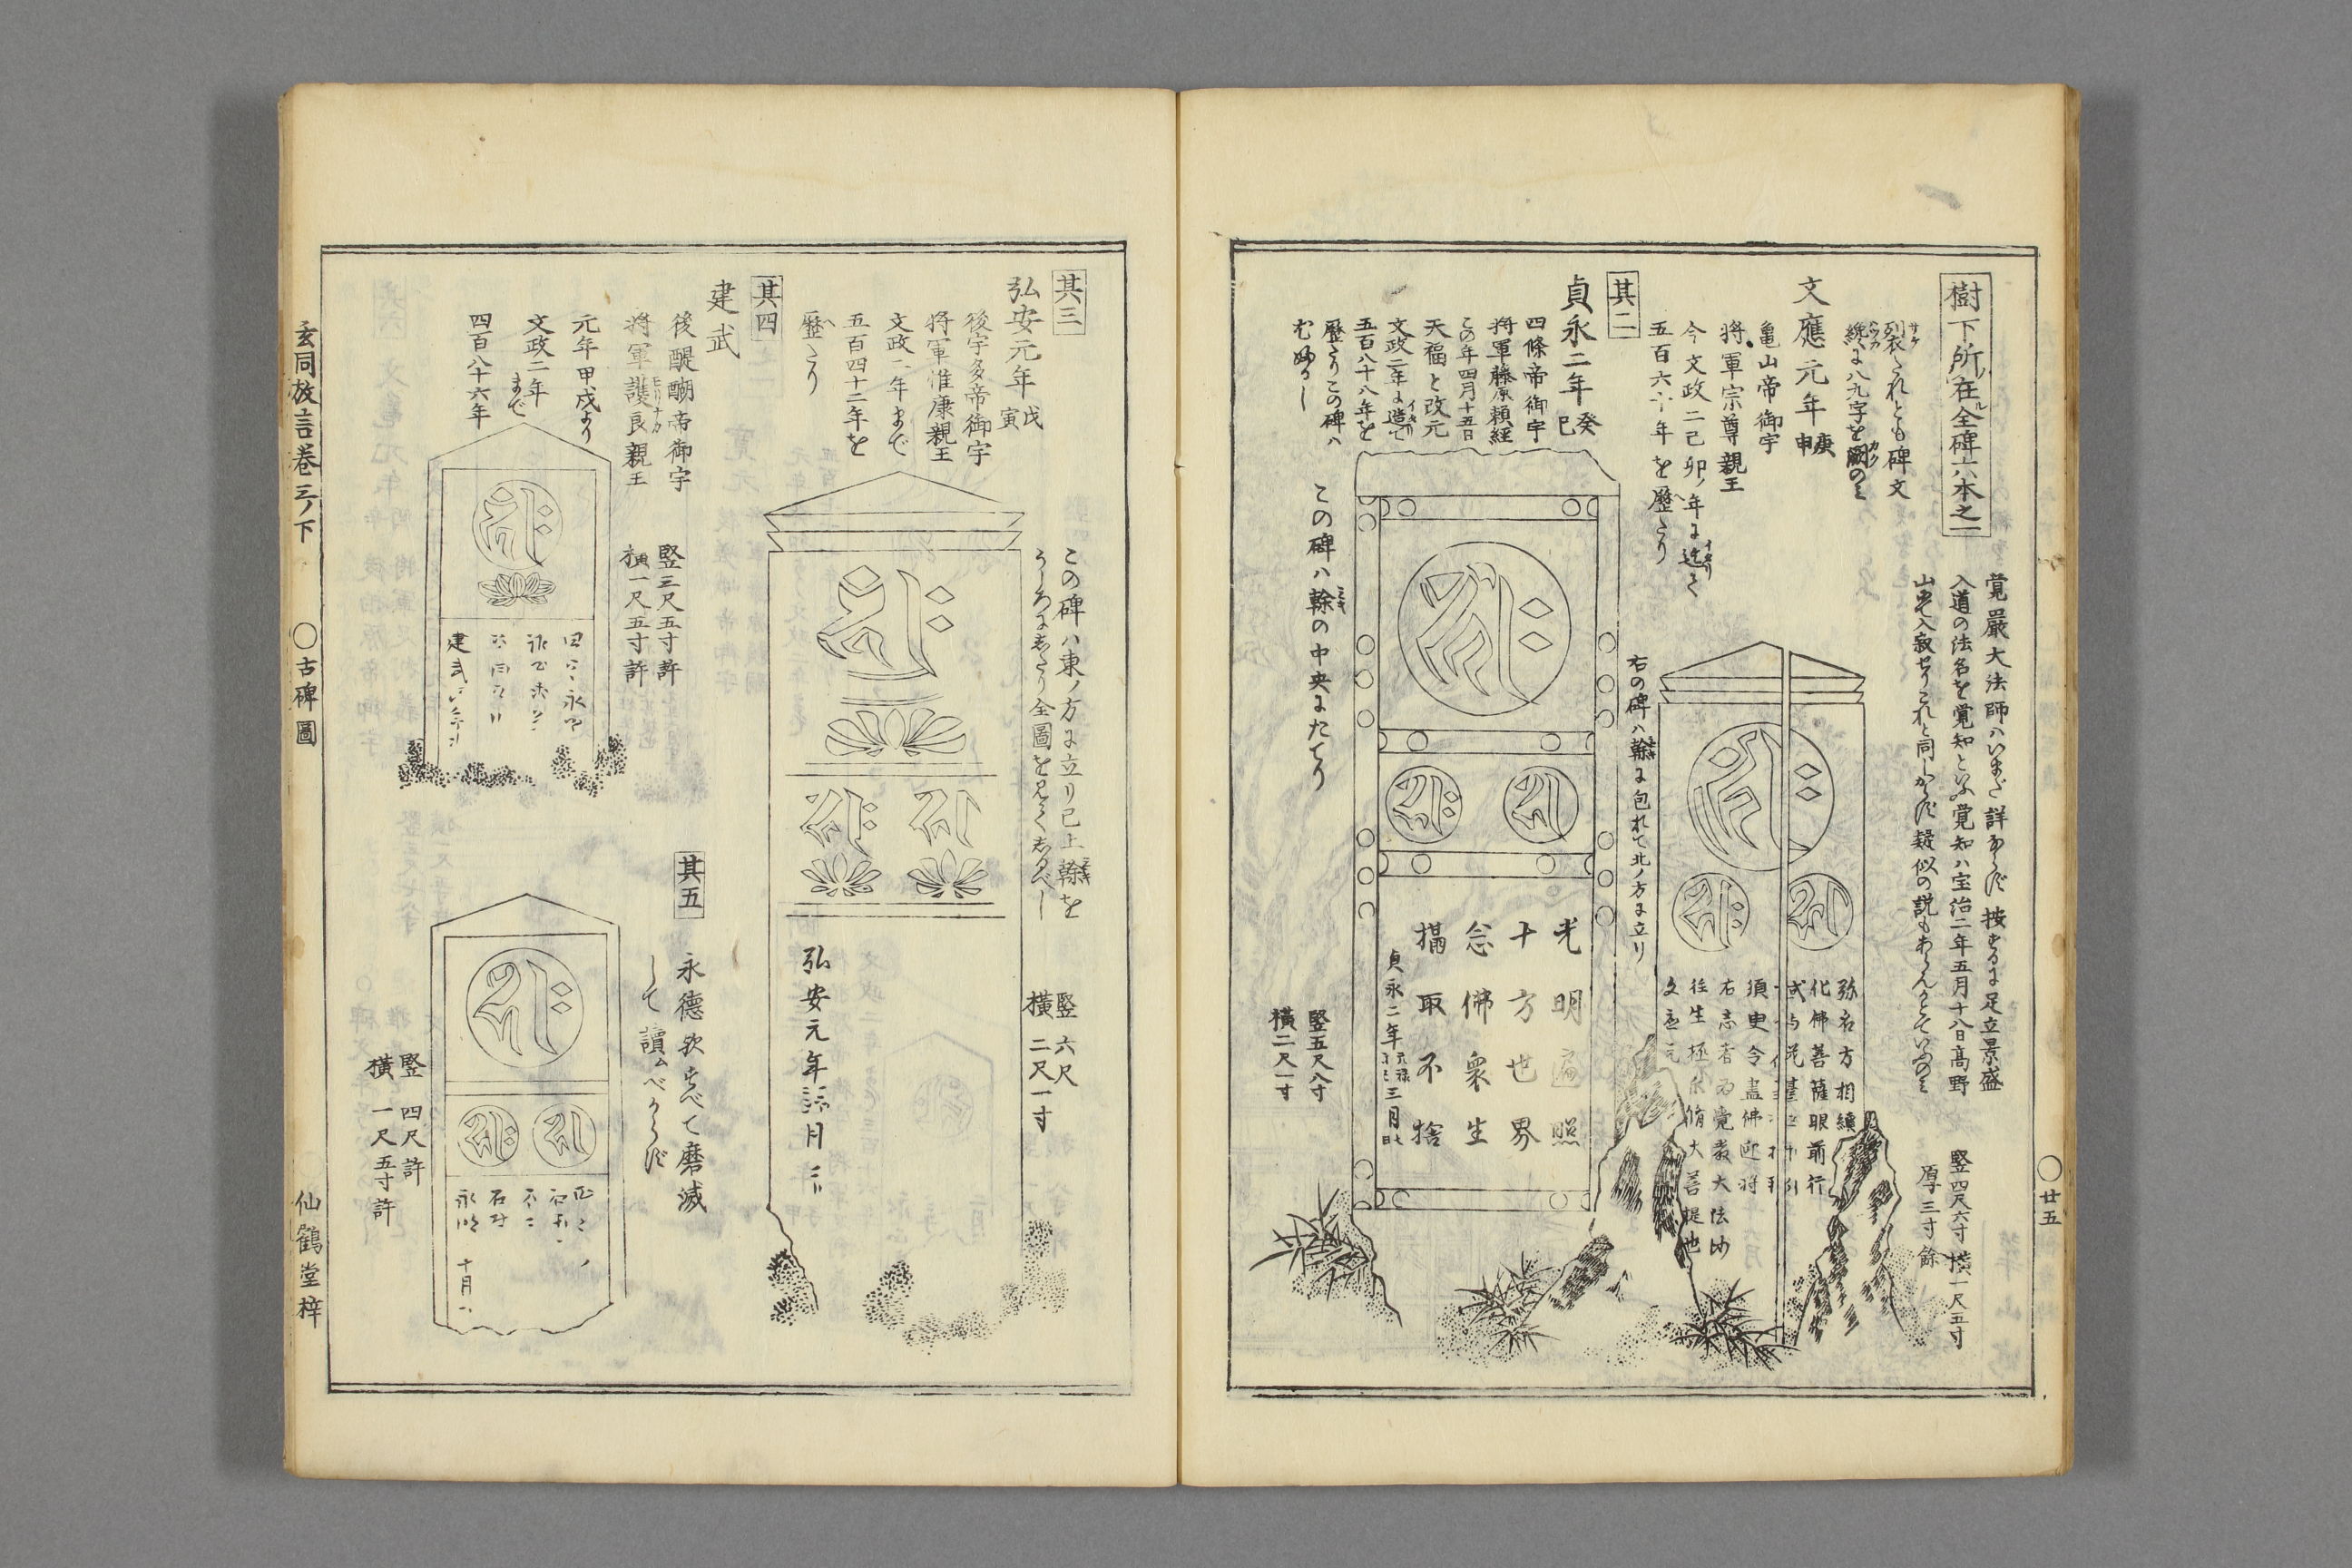 樹下所ノ在ル全碑六本之一
裂たれとも碑文
纔に八九字を闕のミ
文應元年庚申
亀山帝御宇
将軍宗尊親王
今文政二己卯ノ年に迄て
五百六十年を歴たり
覚嚴大法師ハいまだ詳ならず按ずるに足立景盛
入道の法名を覚知といふ覚知ハ宝治二年五月十八日髙野
山にて入寂せりこれと同じからず疑似の説もあらんかとていふのミ
竪四尺六寸横一尺五寸
厚三寸餘
弥名方相續
化佛菩薩眼前行
須臾令盡佛迎将
右志者為覚嚴大法師
往生極楽脩大善提也
文應元
右の碑ハ幹に包れて北ノ方に立り
其二
貞永二年癸巳
四條帝御宇
将軍藤原頼経
この年四月十五日
天福と改元
文政二年に造て
五百八十八年を
歴たりこの碑ハ
この碑ハ幹の中央にたてり
光明遍照
十方世界
念佛衆生
攝取不捨
貞永二年 三月
竪五尺八寸
横二尺一寸
廿五
其三
弘安元年戊寅
後宇多帝御宇
将軍惟康親王
文政二年まで
五百四十二年を
歴たり
この碑ハ東ノ方に立り已上幹を
うしろにしたり全圖を見てしるべし
竪六尺
横二尺一寸
弘安元年 月
其四
建武
後醍醐帝御宇
将軍護良親王
元年甲戌より
文政二年まで
四百八十六年
竪三尺五寸許
横一尺五寸許
永
建武
其五
永德歟すべて磨滅
して讀ムべからず
竪四尺許
横一尺五寸許
永 十月
玄同放言巻三ノ下
〇古碑圖
仙鶴堂梓